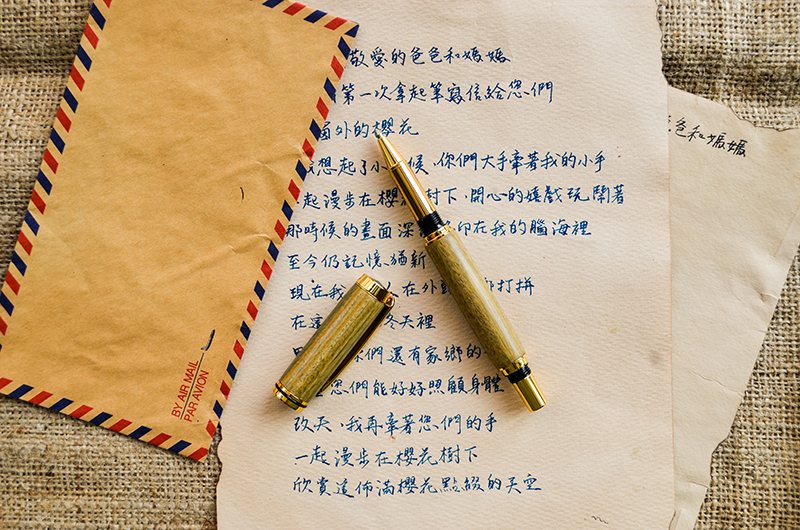 敬愛的爸爸和媽媽
第一次拿起筆寫信給您們
窗外的櫻花
想起了小 候、你們大手牽著我的小手
起漫步在櫻 樹下、開心的嬉戲玩鬧著
那時候的畫面深 印在我的腦海裡
至今仍記憶猶新
現在我 在外 打拼
在這 冬天裡
你們還有家鄉的
您們能好好照顧身體
改天、我再牽著您們的手
一起漫步在櫻花樹下
欣賞這佈滿櫻花點綴的天空
爸和媽媽
BY AIR MAIL
PAR AVION